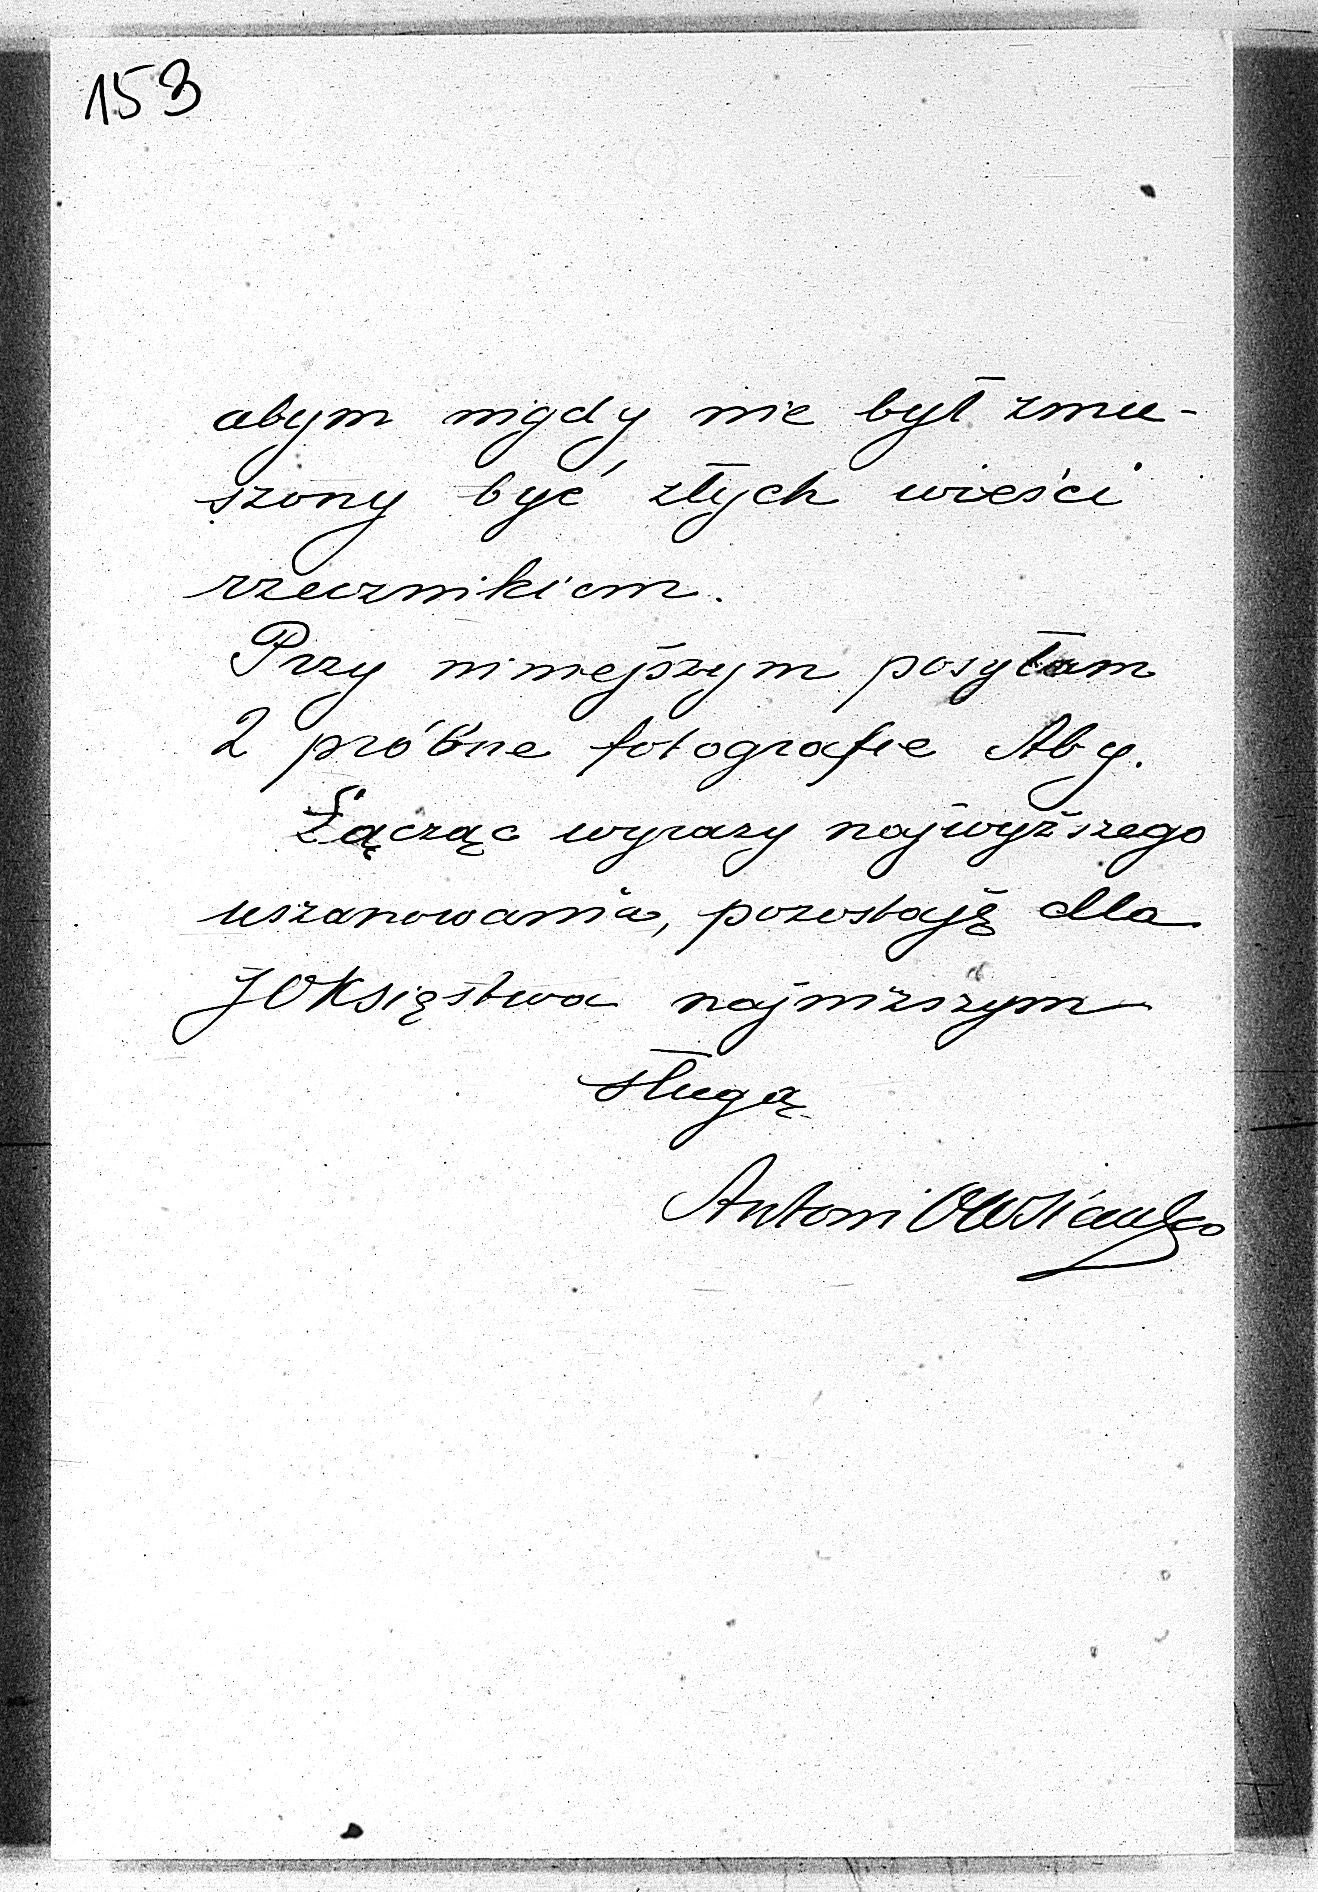 153
abym nigdy nie był zmu-
szony być złych wieści
rzecznikiem.
Przy niniejszym posyłam
2 próbne fotografie Aby.
Łącząc wyrazy najwyższego
uszanowania, pozostaję dla
JOKsięstwa najniższym
sługą
Antoni